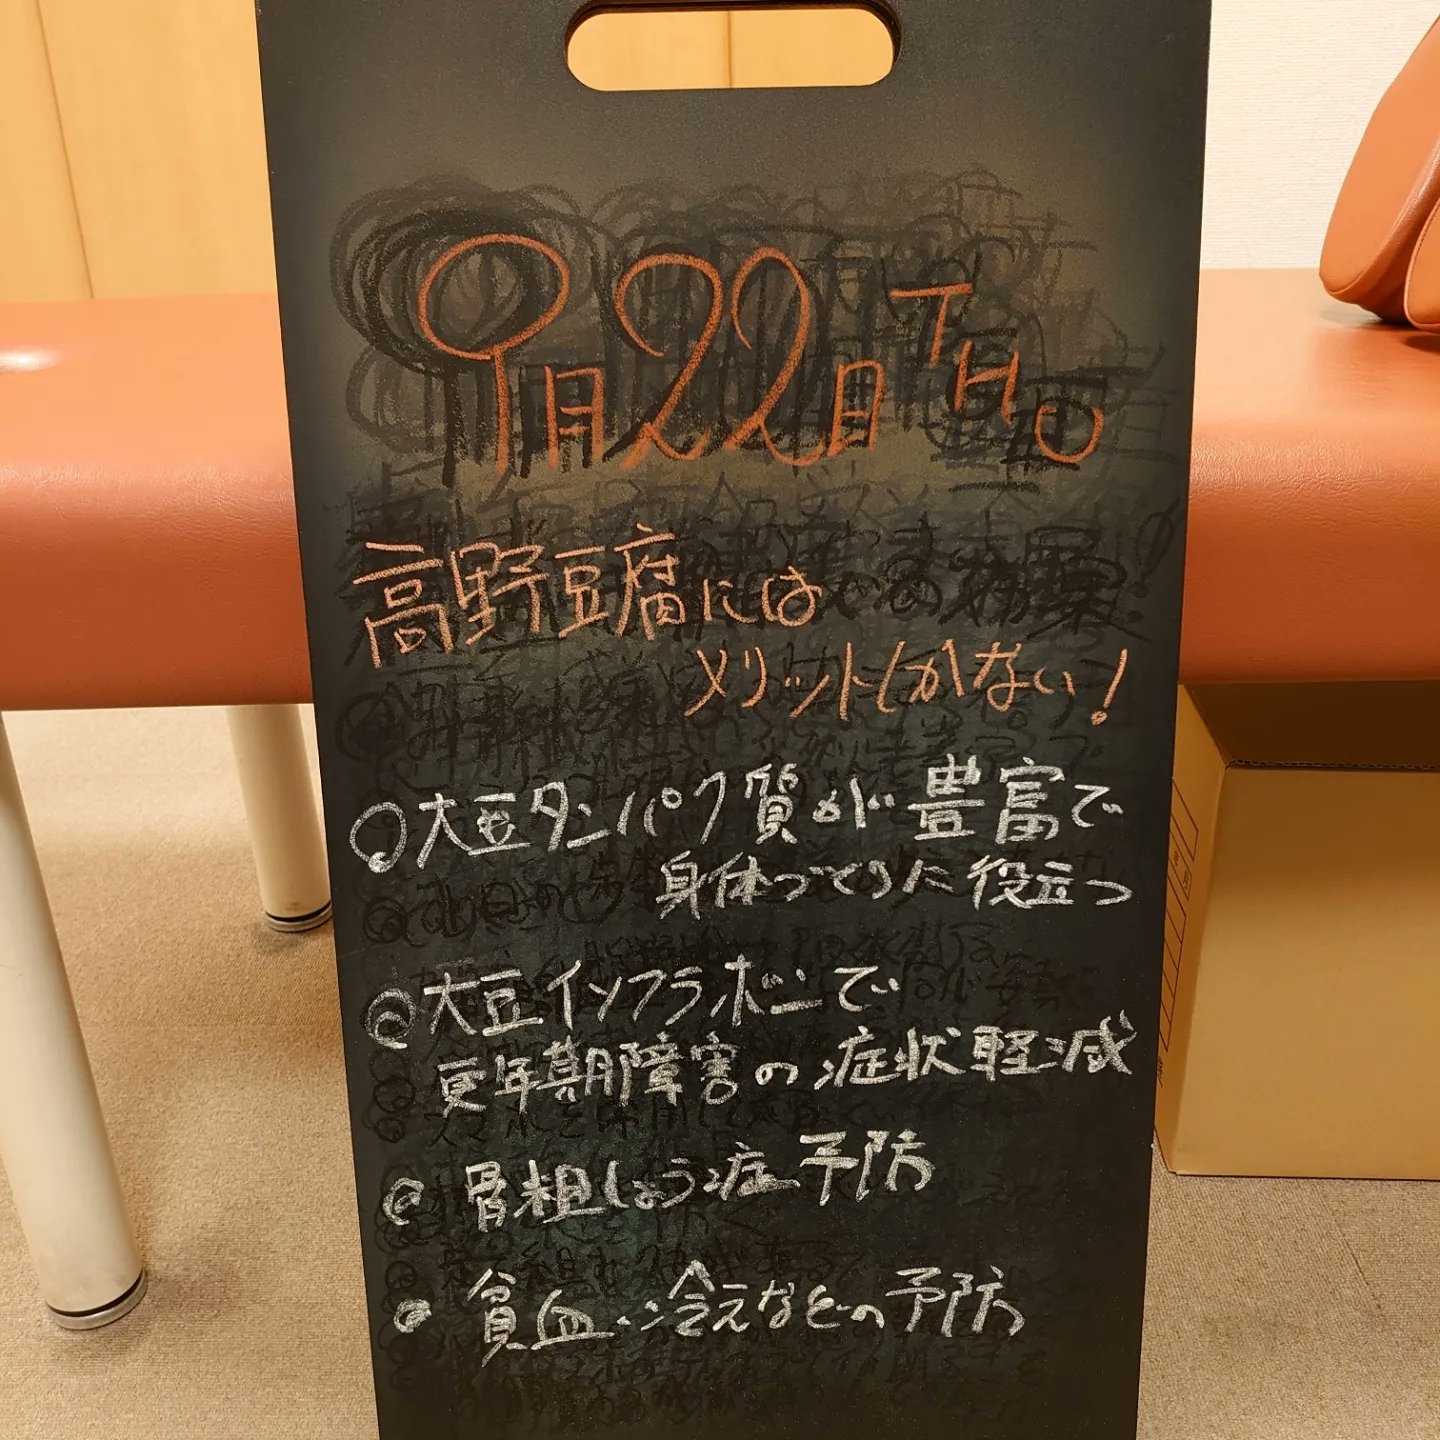 9月22日
高野豆腐には
メリットしかない!
大豆タンパク質が豊富で
身体づくりに役立つ
大豆イソフラボンで
更年期障害の症状軽減
骨粗しょう症予防
貧血・冷えなどの予防